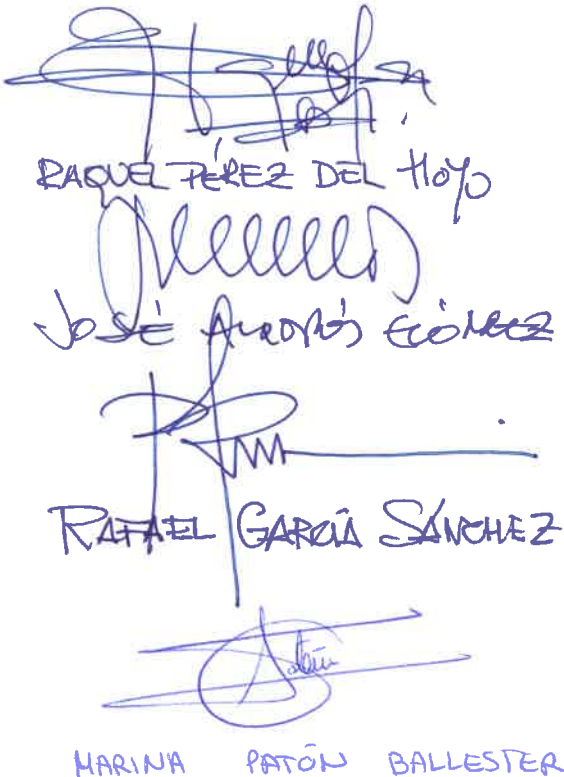 RAQUEL PÉREZ DEL HOYO
JOSÉ ANDRÉS GÓMEZ
RAFAEL GARCÍA SÁNCHEZ
MARINA PATÓN BALLESTER